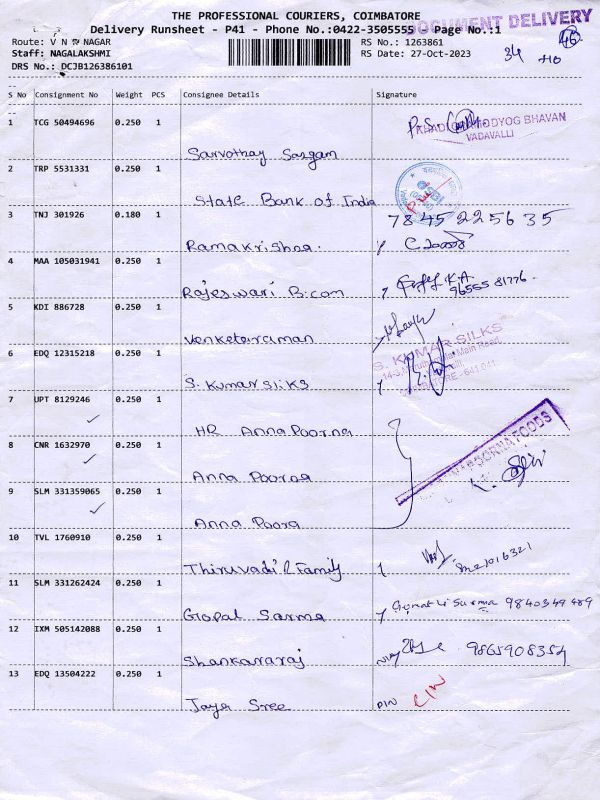 THE PROFESSIONAL COURIERS, COIMBATORE
DOCUMENT DELIVERY
Delivery Runsheet - P41 - Phone No.:0422-3505555 - Page No.:1
Route: V N R NAGAR
RS No.: 1263861
46
Staff: NAGALAKSHMI
RS Date: 27-Oct-2023
34 +10
DRS No.: DCJB126386101
S No Consignment No Weight PCS Consignee Details Signature
1 TCG 50494696 0.250 1
Sarvothay Sasgam
KHADI GRAMODYOG BHAVAN
VADAVALLI
2 TRP 5531331 0.250 1
State Bank of India
SBI
3 TNJ 301926 0.180 1
7845225635
Ramakrishna.
4 MAA 105031941 0.250 1
Rajeswari B.com
K.A.
96555 81776
5 KDI 886728 0.250 1
Venketaraman
6 EDQ 12315218 0.250 1
S. Kumar Sliks
S. KUMAR SILKS
Main Road,
641 041
7 UPT 8129246 0.250 1
HR Anna Poorna
8 CNR 1632970 0.250 1
Anna Poorna
FOODS
9 SLM 331359065 0.250 1
Anna Poora
10 TVL 1760910 0.250 1
Thiruvadi L Family
11 SLM 331262424 0.250 1
Gopal Sarma
Sarma 9840349489
12 IXM 505142088 0.250 1
Shankararaj
9865908354
13 EDQ 13504222 0.250 1
Jaya Sree
PIN